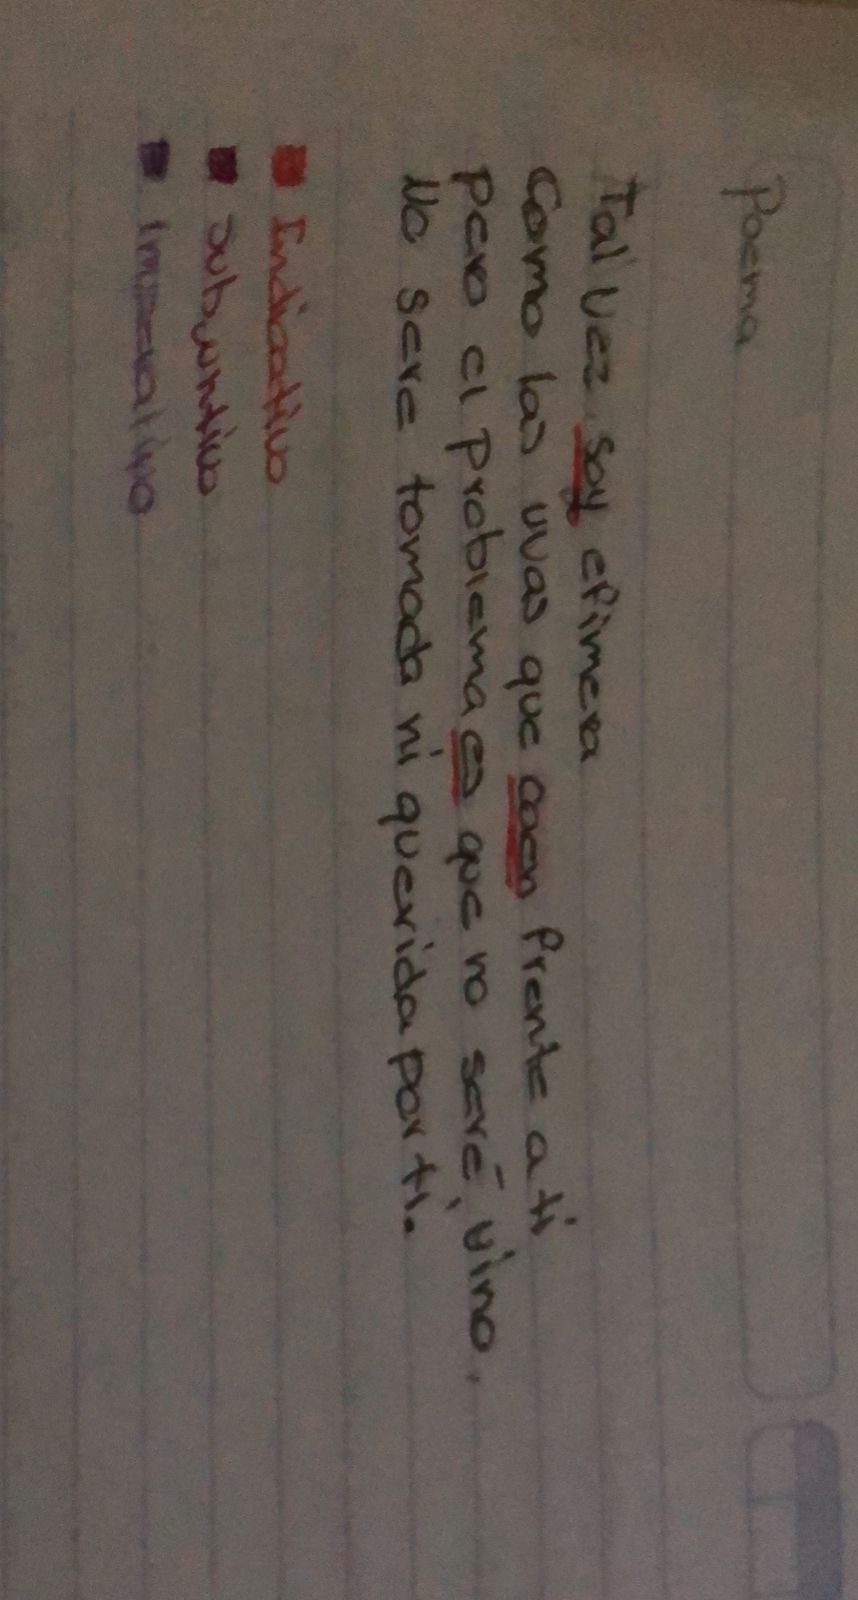 Poema
Tal vez soy efimera
Como las uvas que caen frente a ti
Pero el problema es que no seré, vino,
No sere tomada ni querida por ti.
Indicativo
Subjuntivo
Imperativo